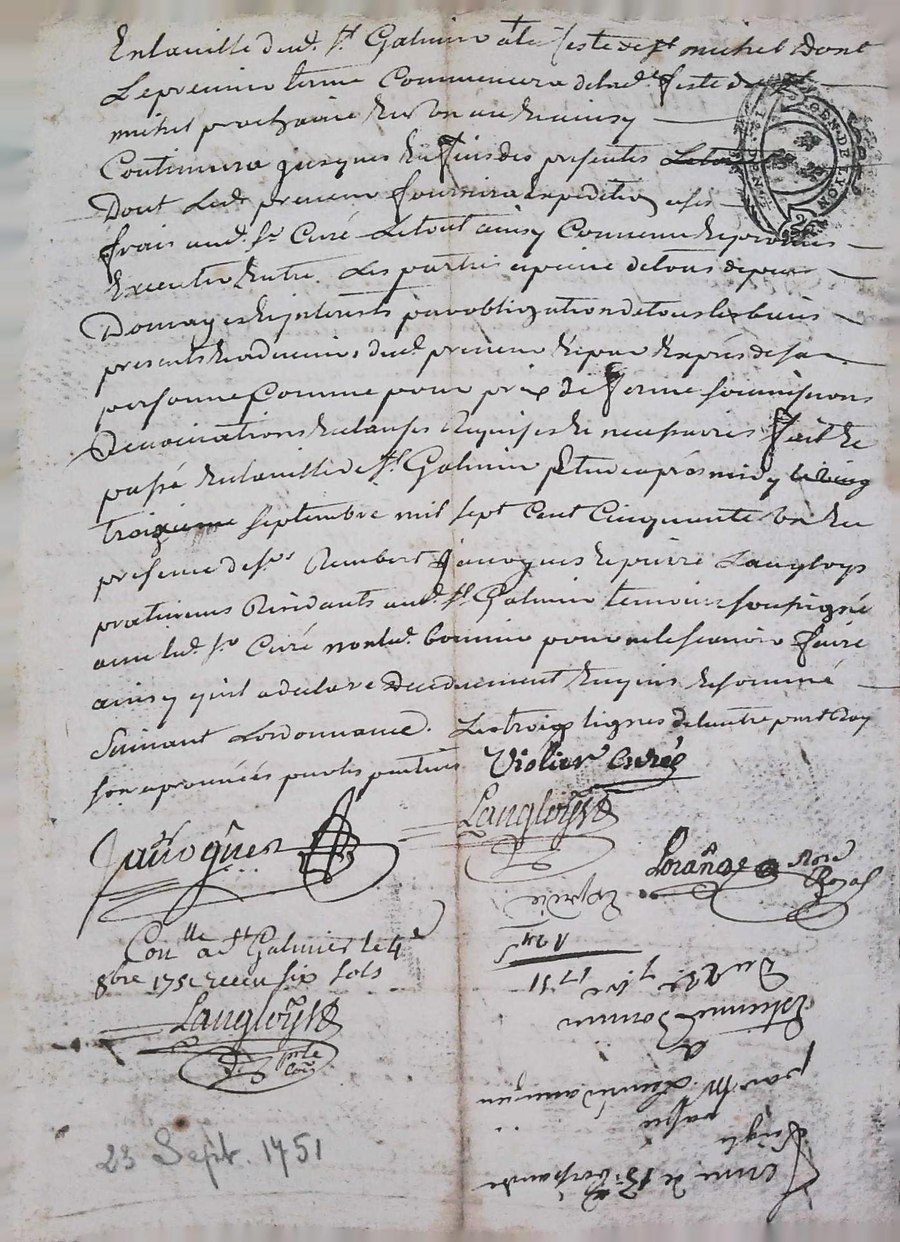 En la ville dud. St Galmier a la feste de St michel Dont
Le premier terme Commencera de lad. feste de St
michel prochaine En Un an Et ainsy
Continuera jusques En fins des presentes
Dont Led. preneur fournira Expedition a ses
frais aud. Sr Curé Le tout ainsy Convenu Et promis
Executer Entre Les parties a peine de tous depens
Domages Et interests par obligation de tous les biens
presents Et advenirs dud. preneur Et par Exprés de sa
personne Comme pour prix de ferme soumissions
Renonciations Et clauses Requises Et necessaires fait Et
passé En la ville de St Galmier Etude aprés midy le ving
troizieme septembre mil sept Cent Cinquante Un En
presence de srs Rembert Javogues Et pierre Langloys
praticiens Residants aud. St Galmier temoins soussignés
avec led. sr Curé non led. bonnier pour ne le scavoir faire
ainsy qu'il a declaré de ce duement Enquis Et sommé
Suivant Lordonnance. Les trois lignes de lautre part
son aprouvées par les parties Violier Curé
Javogues Langloys
Loran̄ge Nore Royal
Conlle a St Galmier le 4e
8bre 1751 receu six sols
Langloys
23 Sept. 1751
GEN. DE LYON
Expedié
1751
Du 23 7bre
Etienne bonnier
a
par Mr
passé
ferme de